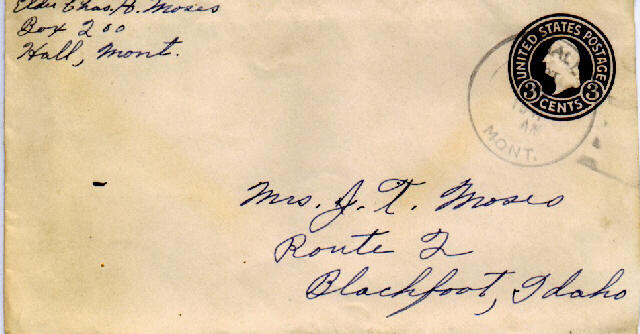 Elder Chas. H. Moses
Box 200
Hall, Mont.
UNITED STATES POSTAGE
3 CENTS 3
HALL
AM
MONT.
Mrs. J. T. Moses
Route 2
Blackfoot, Idaho